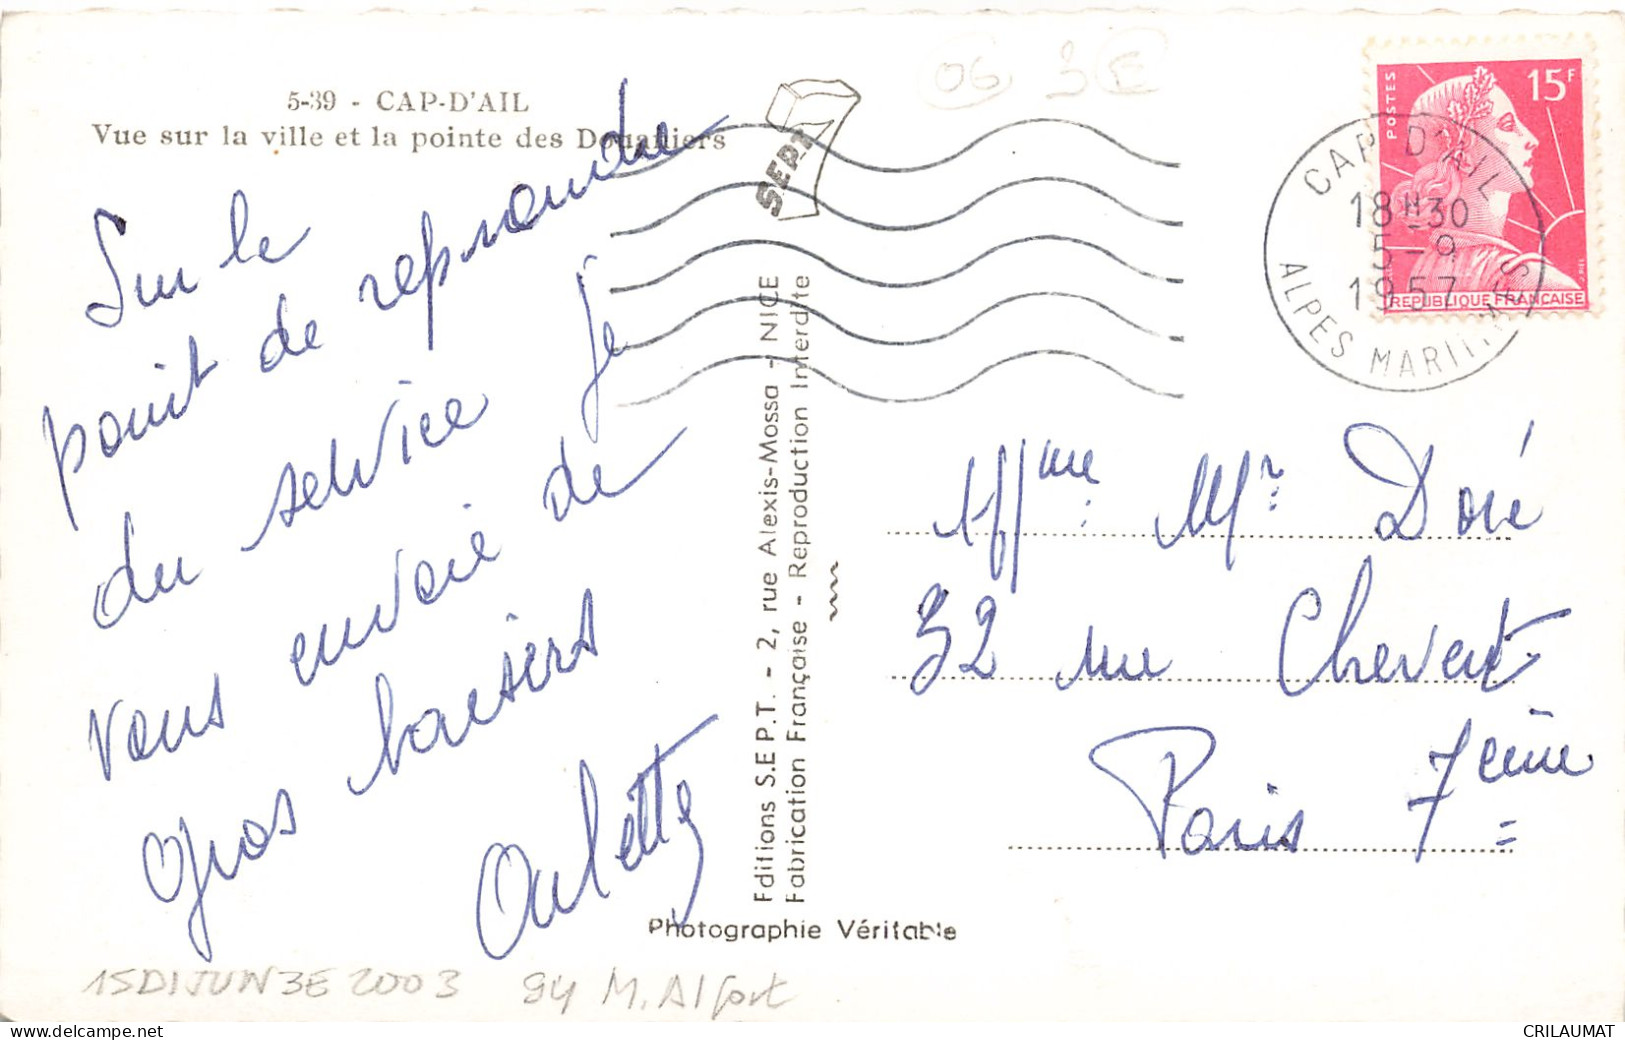 5-39 - CAP-D'AIL
Vue sur la ville et la pointe des Douaniers
Sur le
point de reprendre
du service je
vous envoie de
gros baisers
SEPT
Editions S.E.P.T. - 2, rue Alexis-Mossa - NICE
Fabrication Française - Reproduction Interdite
Photographie Véritable
06 3€
POSTES
15F
REPUBLIQUE FRANÇAISE
CAP D'AIL
18H30
5-9
1957
ALPES MARITIMES
Mme Mr Doré
32 rue Chevert
Paris 7eme
15DIJUN3E2003 94 M. Alfort
https://www.delcampe.net
CRILAUMAT